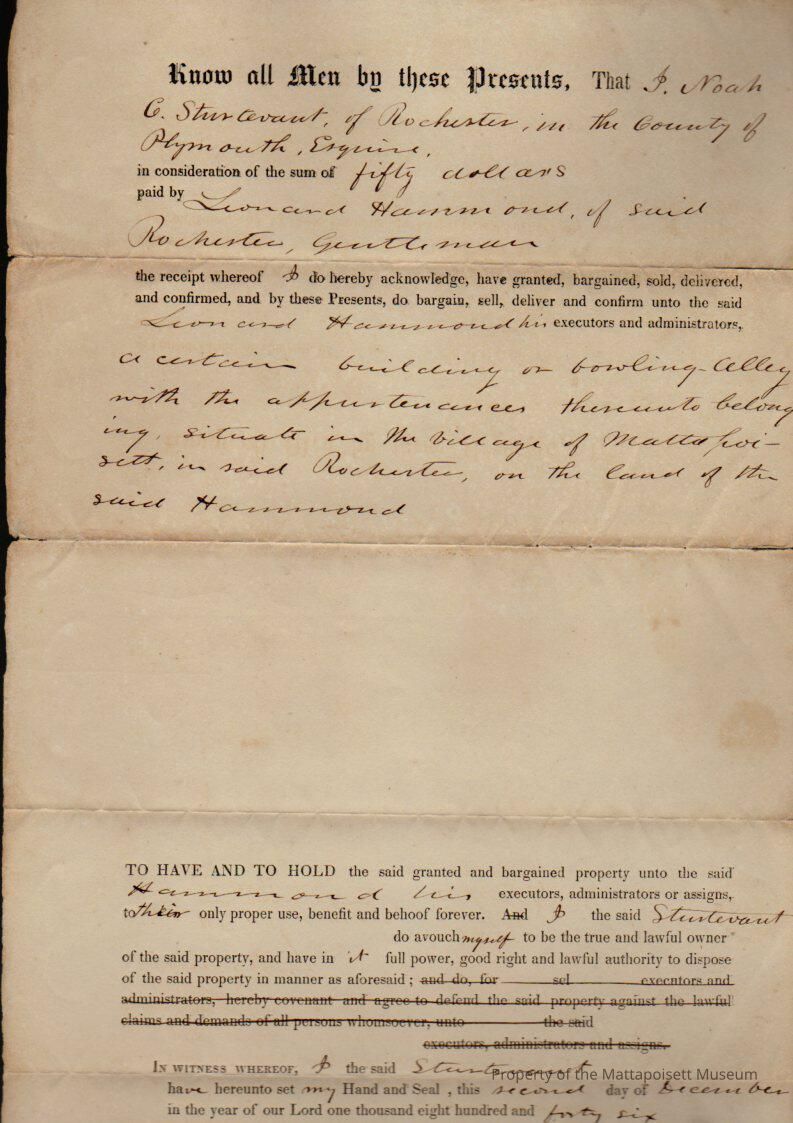 Know all Men by these Presents, That I, Noah
C. Sturtevant, of Rochester, in the County of
Plymouth, Esquire,
in consideration of the sum of fifty dollars
paid by
Leonard Hammond, of said
Rochester, Gentleman
the receipt whereof I do hereby acknowledge, have granted, bargained, sold, delivered,
and confirmed, and by these Presents, do bargain, sell, deliver and confirm unto the said
Leonard Hammond his executors and administrators,
a certain building or bowling-alley
with the appurtenances thereunto belong
ing, situate in the village of Mattapoi-
sett, in said Rochester, on the land of the
said Hammond
TO HAVE AND TO HOLD the said granted and bargained property unto the said
Hammond his executors, administrators or assigns,
to their only proper use, benefit and behoof forever. And I the said Sturtevant
do avouch myself to be the true and lawful owner
of the said property, and have in it full power, good right and lawful authority to dispose
of the said property in manner as aforesaid; and do, for sel executors and
administrators, hereby covenant and agree to defend the said property against the lawful
claims and demands of all persons whomsoever, unto the said
executors, administrators and assigns.
IN WITNESS WHEREOF, I the said Sturtevant
have hereunto set my Hand and Seal, this second day of December
in the year of our Lord one thousand eight hundred and forty six
Property of the Mattapoisett Museum